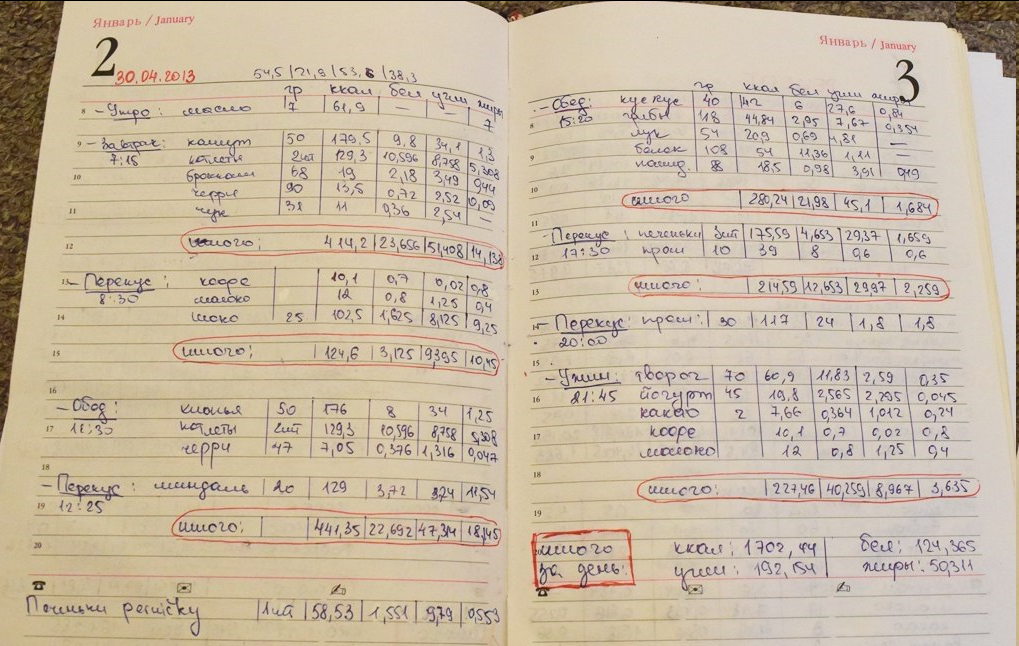 Январь / January
2
30.04.2013 54,5 | 21,9 | 53,6 | 38,3
гр ккал бел угли жиры
8 – Утро : масло 7 61,9 — — 7
9 – Завтрак: камут 50 179,5 9,8 34,1 1,3
7:15 котлеты 2шт 129,3 10,596 8,758 5,308
10 брокколи 68 19 2,18 3,49 0,44
черри 90 13,5 0,72 2,52 0,09
11 лук 31 11 0,36 2,54 —
12 итого: 414,2 23,656 51,408 14,138
13 – Перекус : кофе 10,1 0,7 0,02 0,8
8:30 молоко 12 0,8 1,25 0,4
14 шоко 25 102,5 1,625 8,125 9,25
15 итого: 124,6 3,125 9,395 10,45
16
– Обед: киноья 50 176 8 34 1,25
17 11:30 котлеты 2шт 129,3 10,596 8,758 5,308
черри 47 7,05 0,376 1,316 0,047
18
– Перекус : миндаль 20 129 3,72 3,24 11,54
19 12:25
итого: 441,35 22,692 47,314 18,145
20
Печеньки 1шт 58,53 1,551 9,79 0,553
Январь / January
3
гр ккал бел угли жиры
– Обед: кускус 40 142 6 27,6 0,64
8 15:20 грибы 118 44,84 2,95 7,67 0,354
лук 54 20,9 0,69 4,81 —
9 белок 108 54 11,36 1,11 —
помид. 88 18,5 0,98 3,91 0,19
10
итого 280,24 21,98 45,1 1,684
11
– Перекус : печеньки 3шт 175,59 4,653 29,37 1,659
12 17:30 прот 10 39 8 0,6 0,6
13 итого: 214,59 12,653 29,97 2,259
14 – Перекус: прот : 30 117 24 1,8 1,8
20:00
15
– Ужин: творог 70 60,9 11,83 2,59 0,35
16 21:45 йогурт 45 19,8 2,565 2,295 0,045
какао 2 7,66 0,364 1,012 0,24
17 кофе 10,1 0,7 0,02 0,8
молоко 12 0,8 1,25 0,4
18
итого: 227,46 40,259 8,967 3,635
19
20 итого ккал: 1702,44 бел: 124,365
за день: угли: 192,154 жиры: 50,311